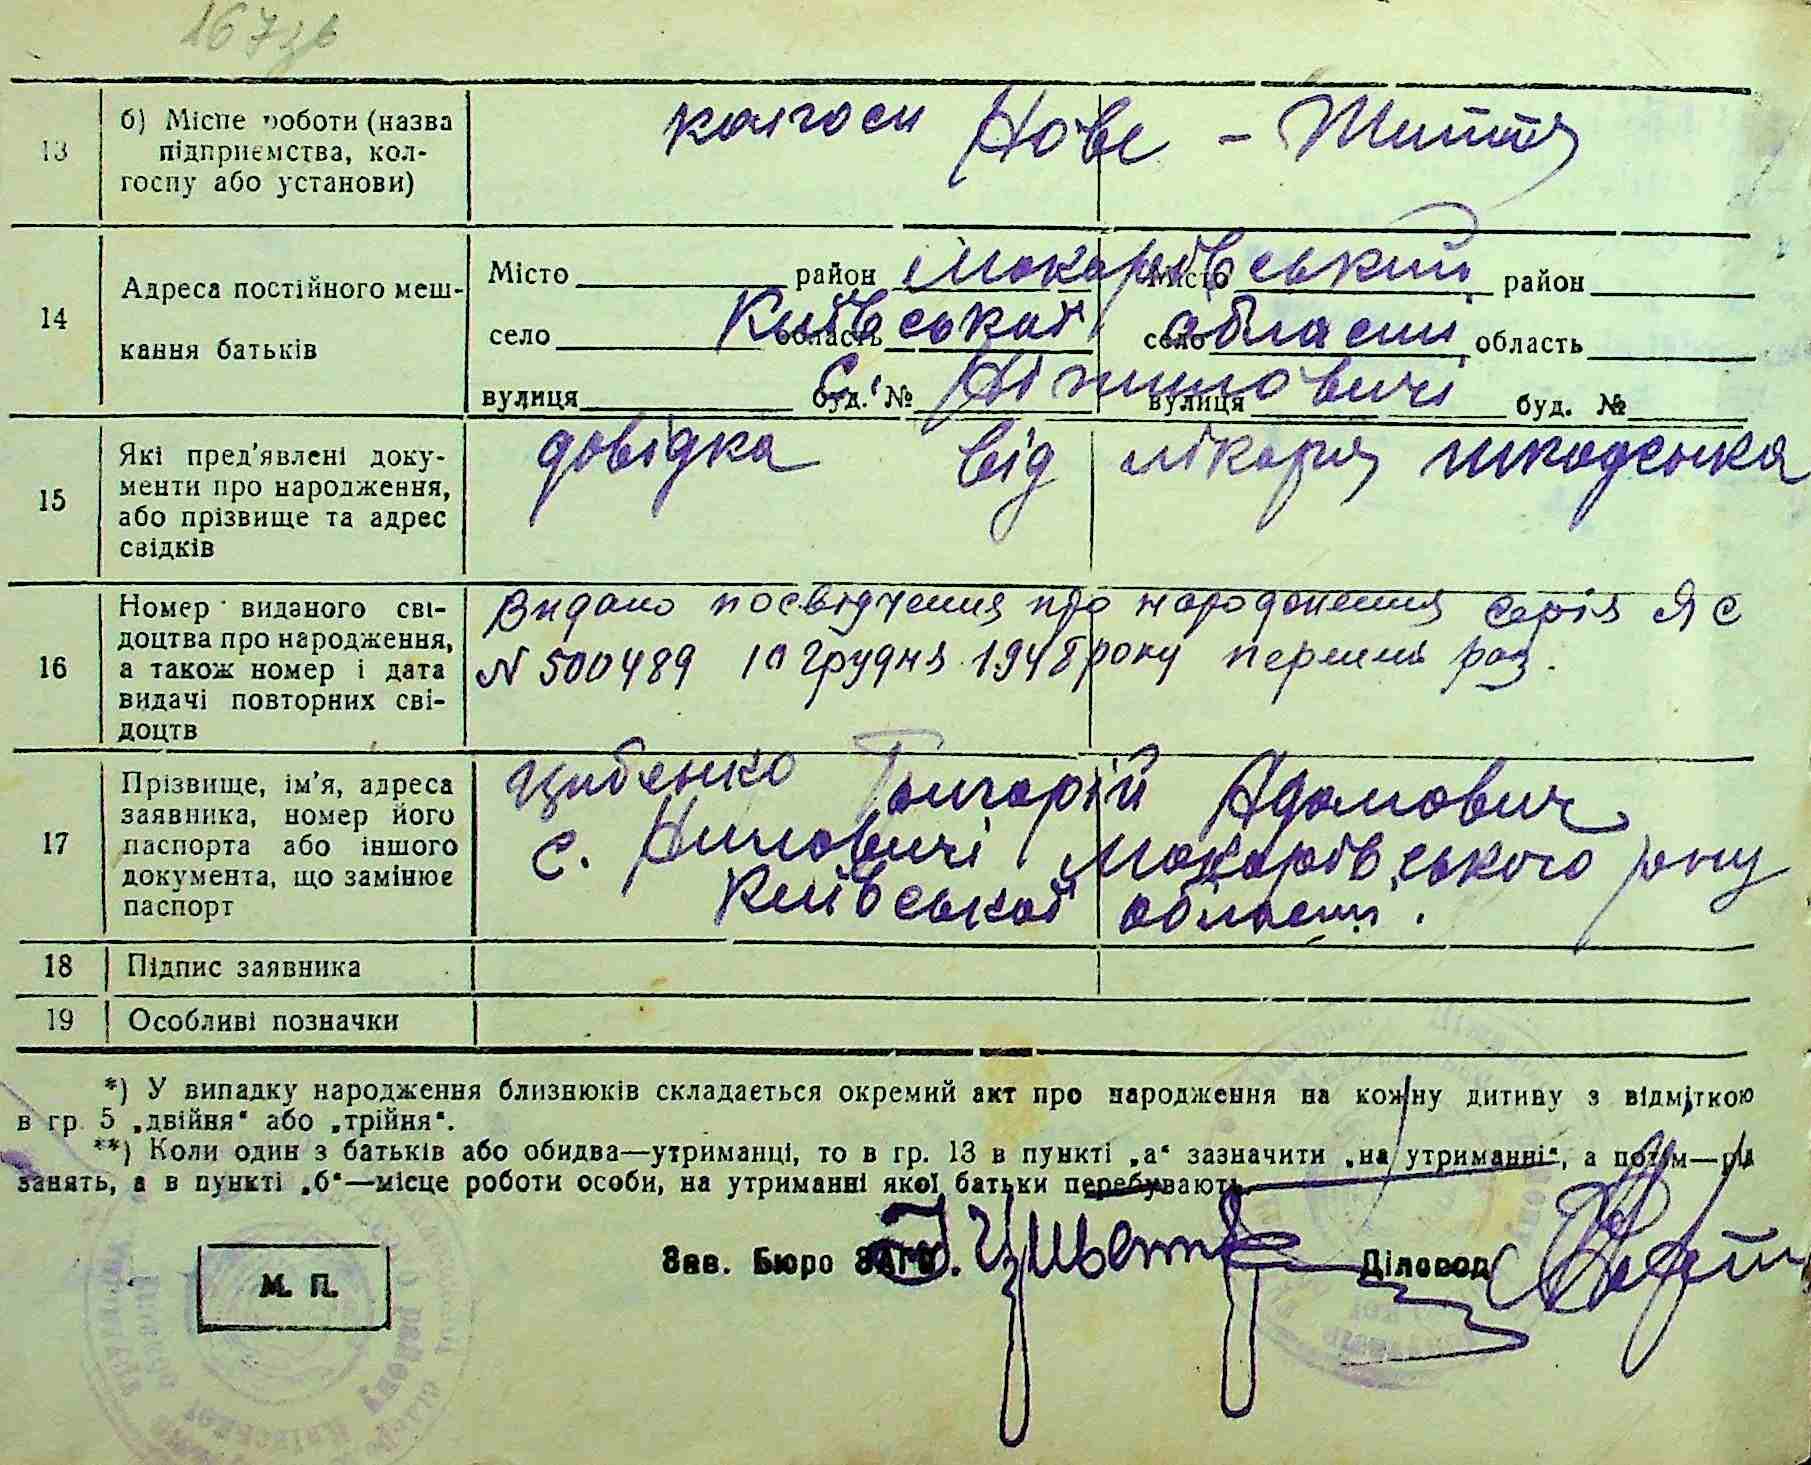 167зв
13 б) Місце роботи (назва підприємства, колгоспу або установи) колгосп Нове - Життя
14 Адреса постійного мешкання батьків
Місто район Макарівський Місто район
село Київської область області село область
вулиця с. буд. № Ніжиловичі вулиця буд. №
15 Які пред'явлені документи про народження, або прізвище та адрес свідків
довідка від лікаря
16 Номер виданого свідоцтва про народження, а також номер і дата видачі повторних свідоцтв
Видано посвідчення про народження серія ЯС
N 500489 грудня 1948 року перший раз.
17 Прізвище, ім'я, адреса заявника, номер його паспорта або іншого документа, що замінює паспорт
Цибенко Григорій Адамович
с. Макарівського р-ну
Київської області.
18 Підпис заявника
19 Особливі позначки
*) У випадку народження близнюків складається окремий акт про народження на кожну дитину з відміткою
в гр. 5 „двійня“ або „трійня“.
**) Коли один з батьків або обидва—утриманці, то в гр. 13 в пункті „а“ зазначити „на утриманні“, а потім—рід
занять, а в пункті „б“—місце роботи особи, на утриманні якої батьки перебувають.
Зав. Бюро ЗАГС. Діловод
М. П.